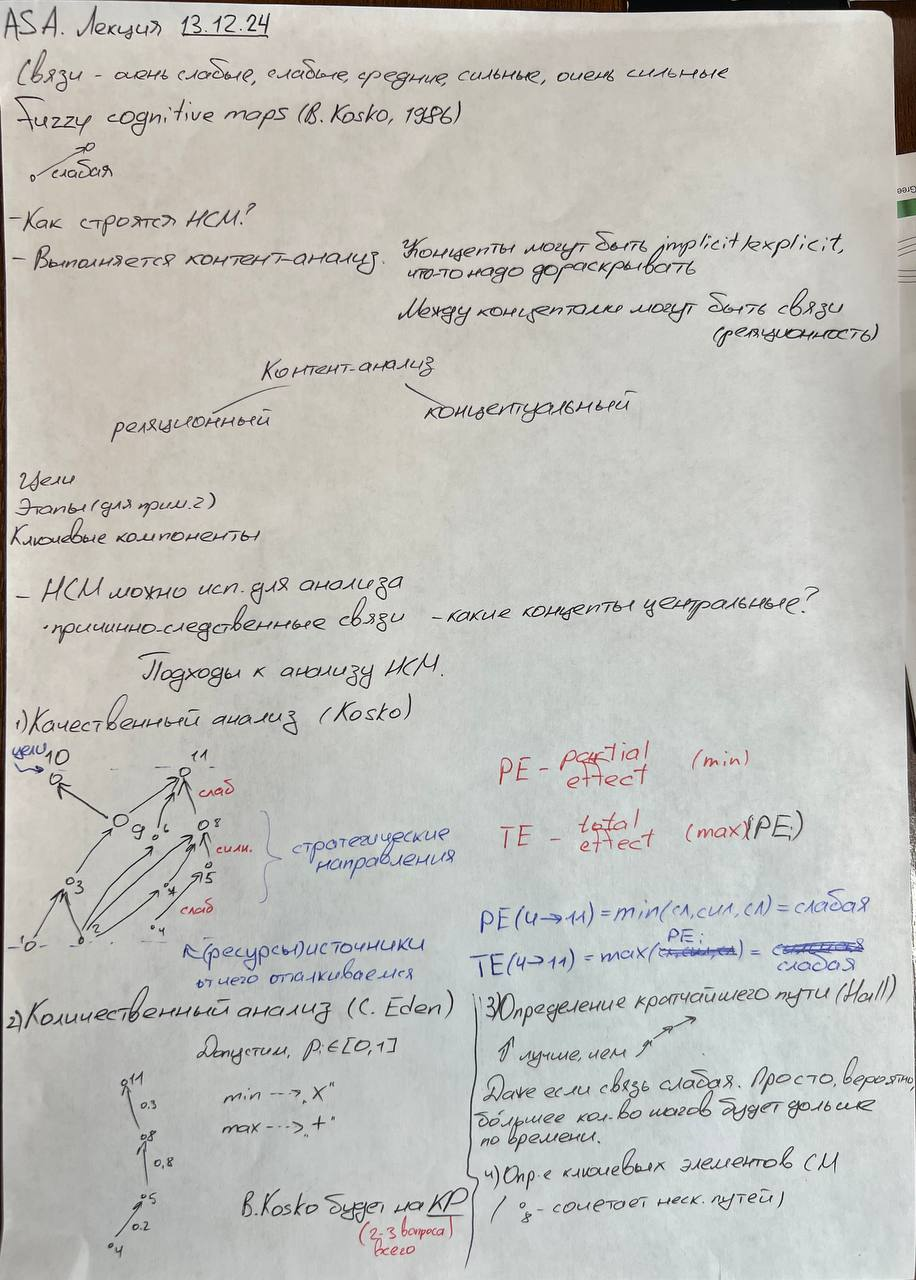 ASA. Лекция 13.12.24
Связи - очень слабые, слабые, средние, сильные, очень сильные
Fuzzy cognitive maps (B. Kosko, 1986)
слабая
- Как строятся НСМ?
- Выполняется контент-анализ.
Концепты могут быть implicit/explicit,
что-то надо дораскрывать
Между концептами могут быть связи
(реляционность)
Контент-анализ
реляционный
концептуальный
Цели
Этапы (для прим. 2)
Ключевые компоненты
- НСМ можно исп. для анализа
· причинно-следственные связи - какие концепты центральные?
Подходы к анализу НСМ.
1) Качественный анализ (Kosko)
цели
10
11
слаб
9
6
8
сильн.
3
4
5
слаб
1
2
4
стратегические
направления
(ресурсы) источники
от чего отталкиваемся
PE - partial effect (min)
TE - total effect (max)(PEi)
PE(4→11) = min(сл, сил, сл) = слабая
TE(4→11) = max(PEi) = слабая
2) Количественный анализ (C. Eden)
Допустим, pi ∈ [0,1]
min --> "x"
max --> "+"
11
0.3
8
0,8
5
0.2
4
B. Kosko будет на КР
(2-3 вопроса)
всего
3) Определение кратчайшего пути (Hall)
↑ лучше, чем
Даже если связь слабая. Просто, вероятно
бо́льшее кол-во шагов будет дольше
по времени.
4) Опр-е ключевых элементов СМ
( 8 - сочетает неск. путей)